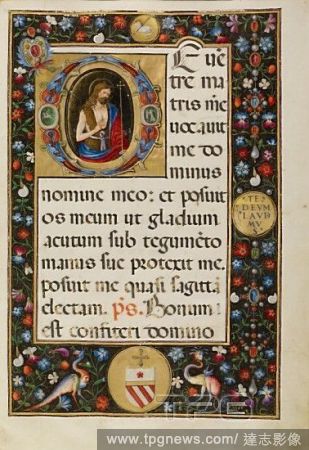 DE uē
tre ma
tris mē
uocauit
me do
minus
nomine meo: et posuit
os meum ut gladium
acutum sub tegumēto
manus sue protexit me.
posuit me quasi sagittā
electam. ps. Bonum
est confiteri domino
TE
DEVM
LAVD
TPG
www.tpgnews.com/ 達志影像